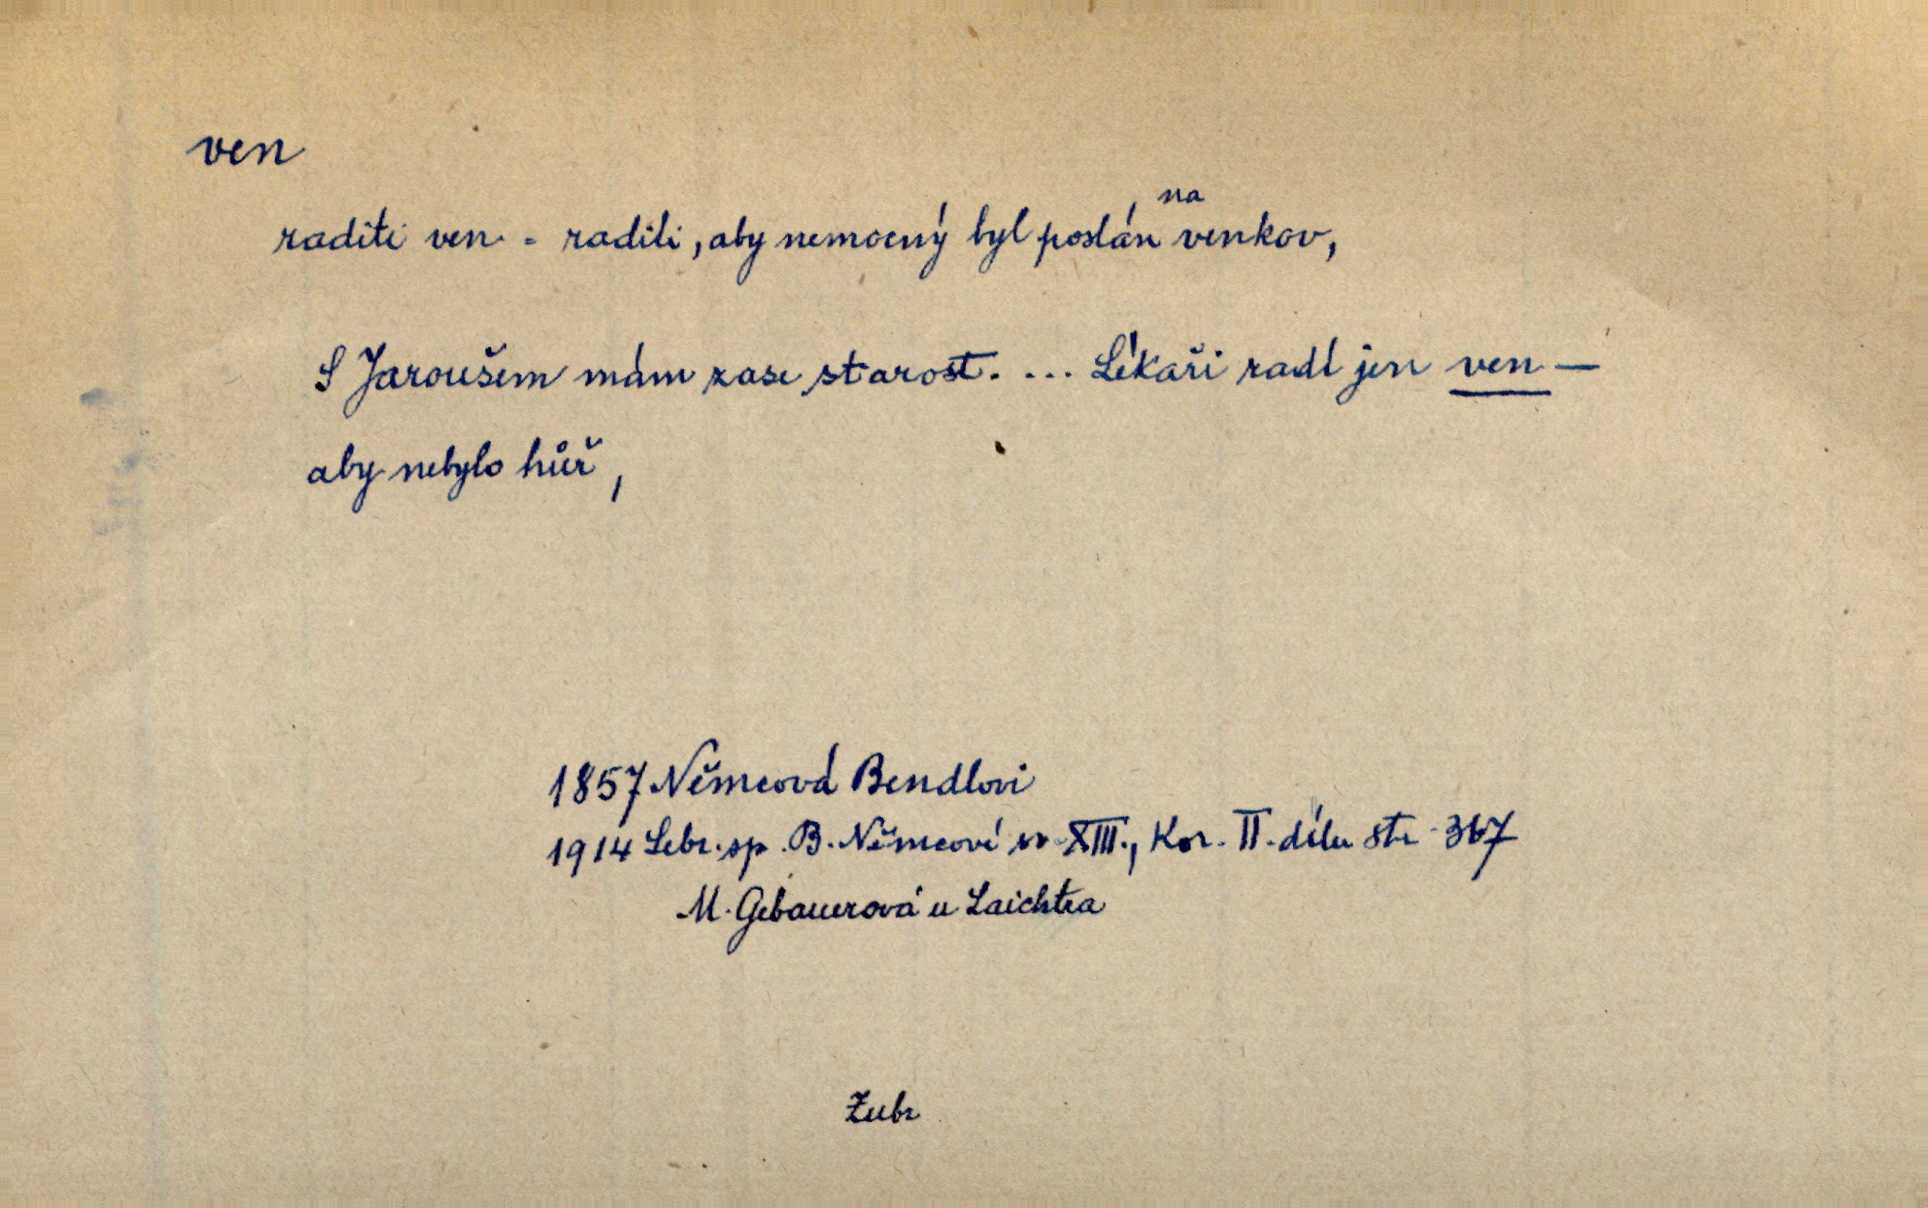 ven
raditi ven - radili, aby nemocný byl poslán na venkov,
S Jaroušem mám zase starost. ... Lékaři radí jen ven —
aby nebylo hůř,
1857 Němcová Bendlovi
1914 Sebr. sp. B. Němcové sv. XIII., Kor. II. dílu str. 367
M. Gebauerová u Laichtra
Zubr